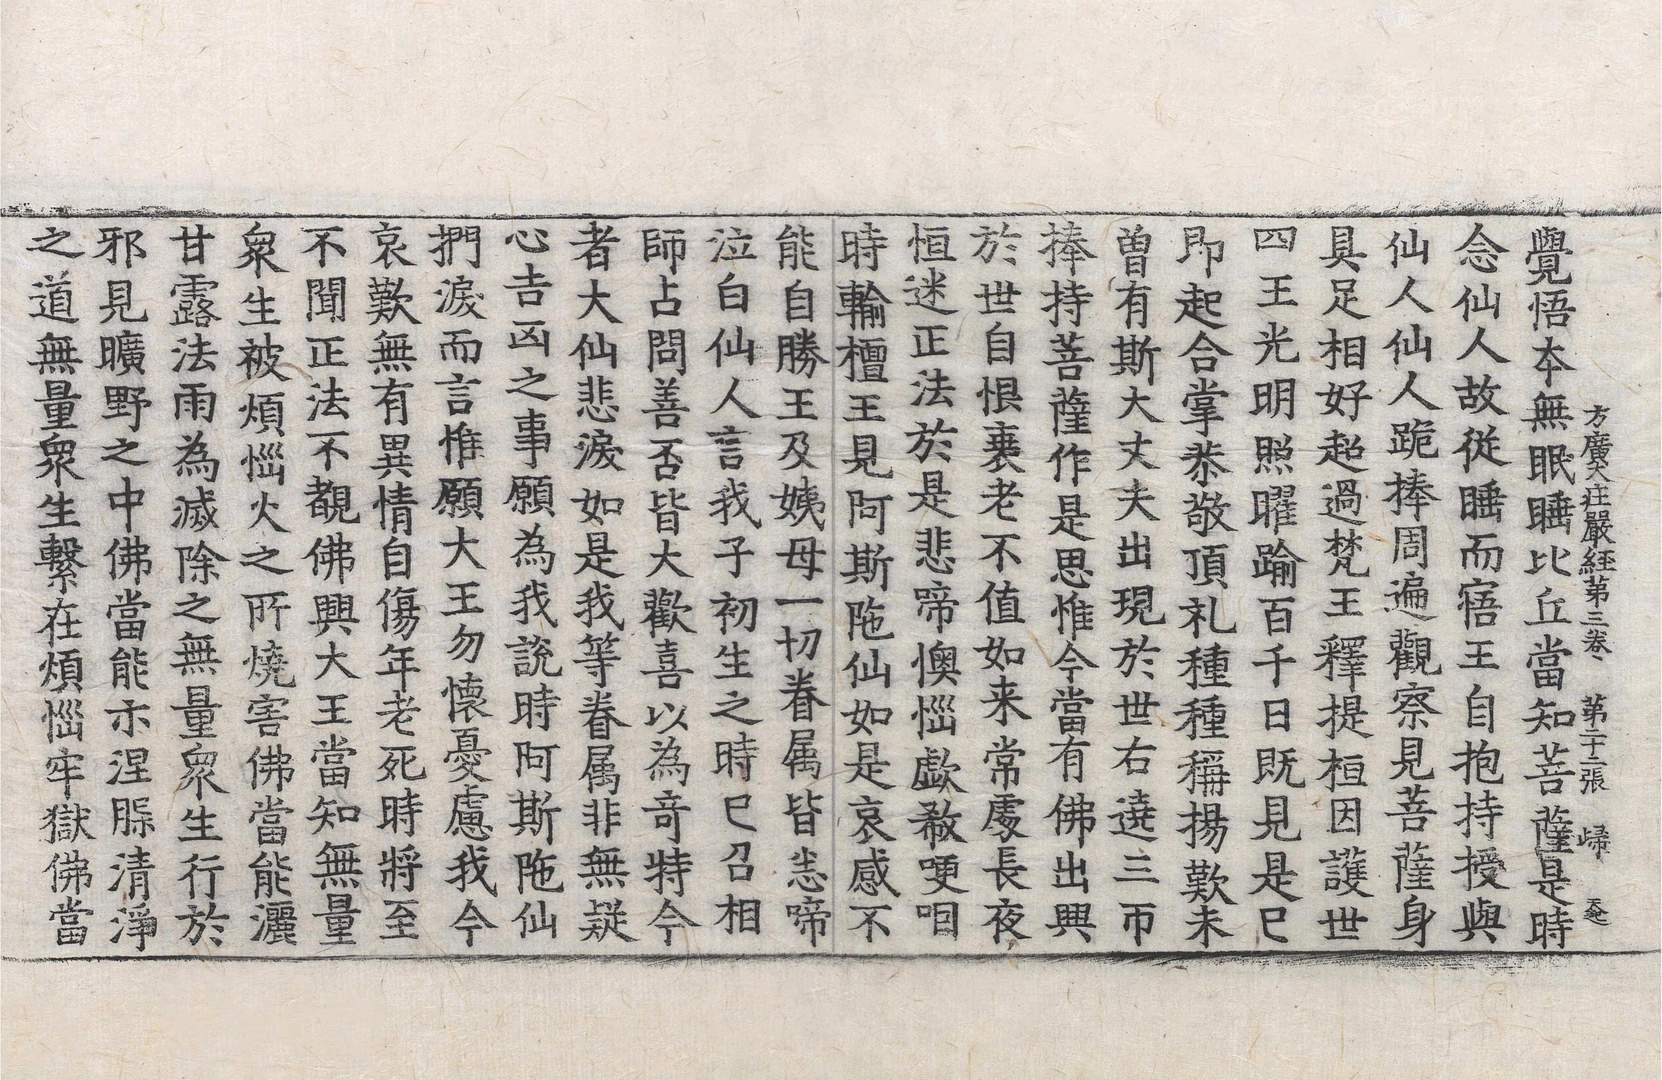 方廣大莊嚴經第三卷　第二十二張　歸
覺悟本無眠睡比丘當知菩薩是時
念仙人故從睡而寤王自抱持授與
仙人仙人跪捧周遍觀察見菩薩身
具足相好超過梵王釋提桓因護世
四王光明照曜踰百千日既見是已
即起合掌恭敬頂礼種種稱揚歎未
曽有斯大丈夫出現於世右遶三帀
捧持菩薩作是思惟今當有佛出興
於世自恨衰老不值如来常處長夜
恒迷正法於是悲啼懊惱歔欷哽咽
時輸檀王見阿斯陁仙如是哀感不
能自勝王及姨母一切眷属皆悉啼
泣白仙人言我子初生之時已召相
師占問善否皆大歡喜以為竒特今
者大仙悲淚如是我等眷属非無疑
心吉凶之事願為我説時阿斯陁仙
捫淚而言惟願大王勿懷憂慮我今
哀歎無有異情自傷年老死時將至
不聞正法不覩佛興大王當知無量
衆生被煩惱火之所燒害佛當能灑
甘露法雨為滅除之無量衆生行於
邪見曠野之中佛當能示涅槃清淨
之道無量衆生繫在煩惱牢獄佛當